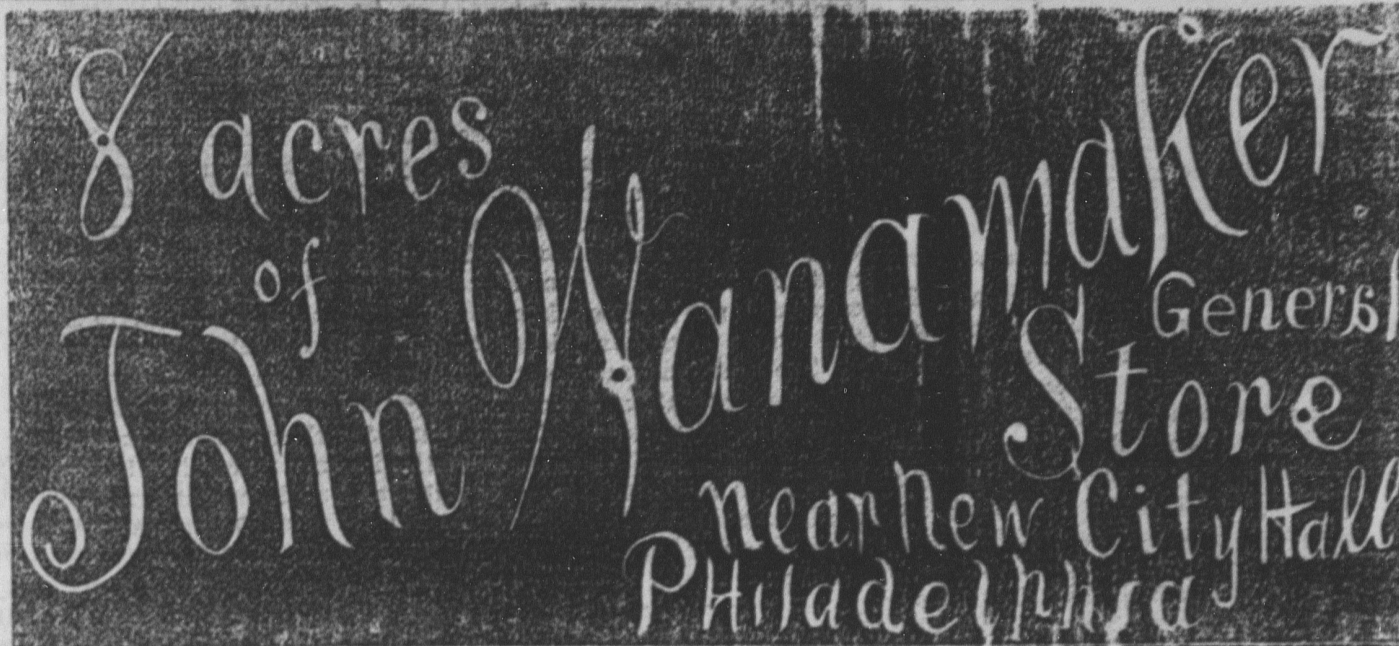 8 acres
of
John Wanamaker
General
Store
near New City Hall
PHiladelphia